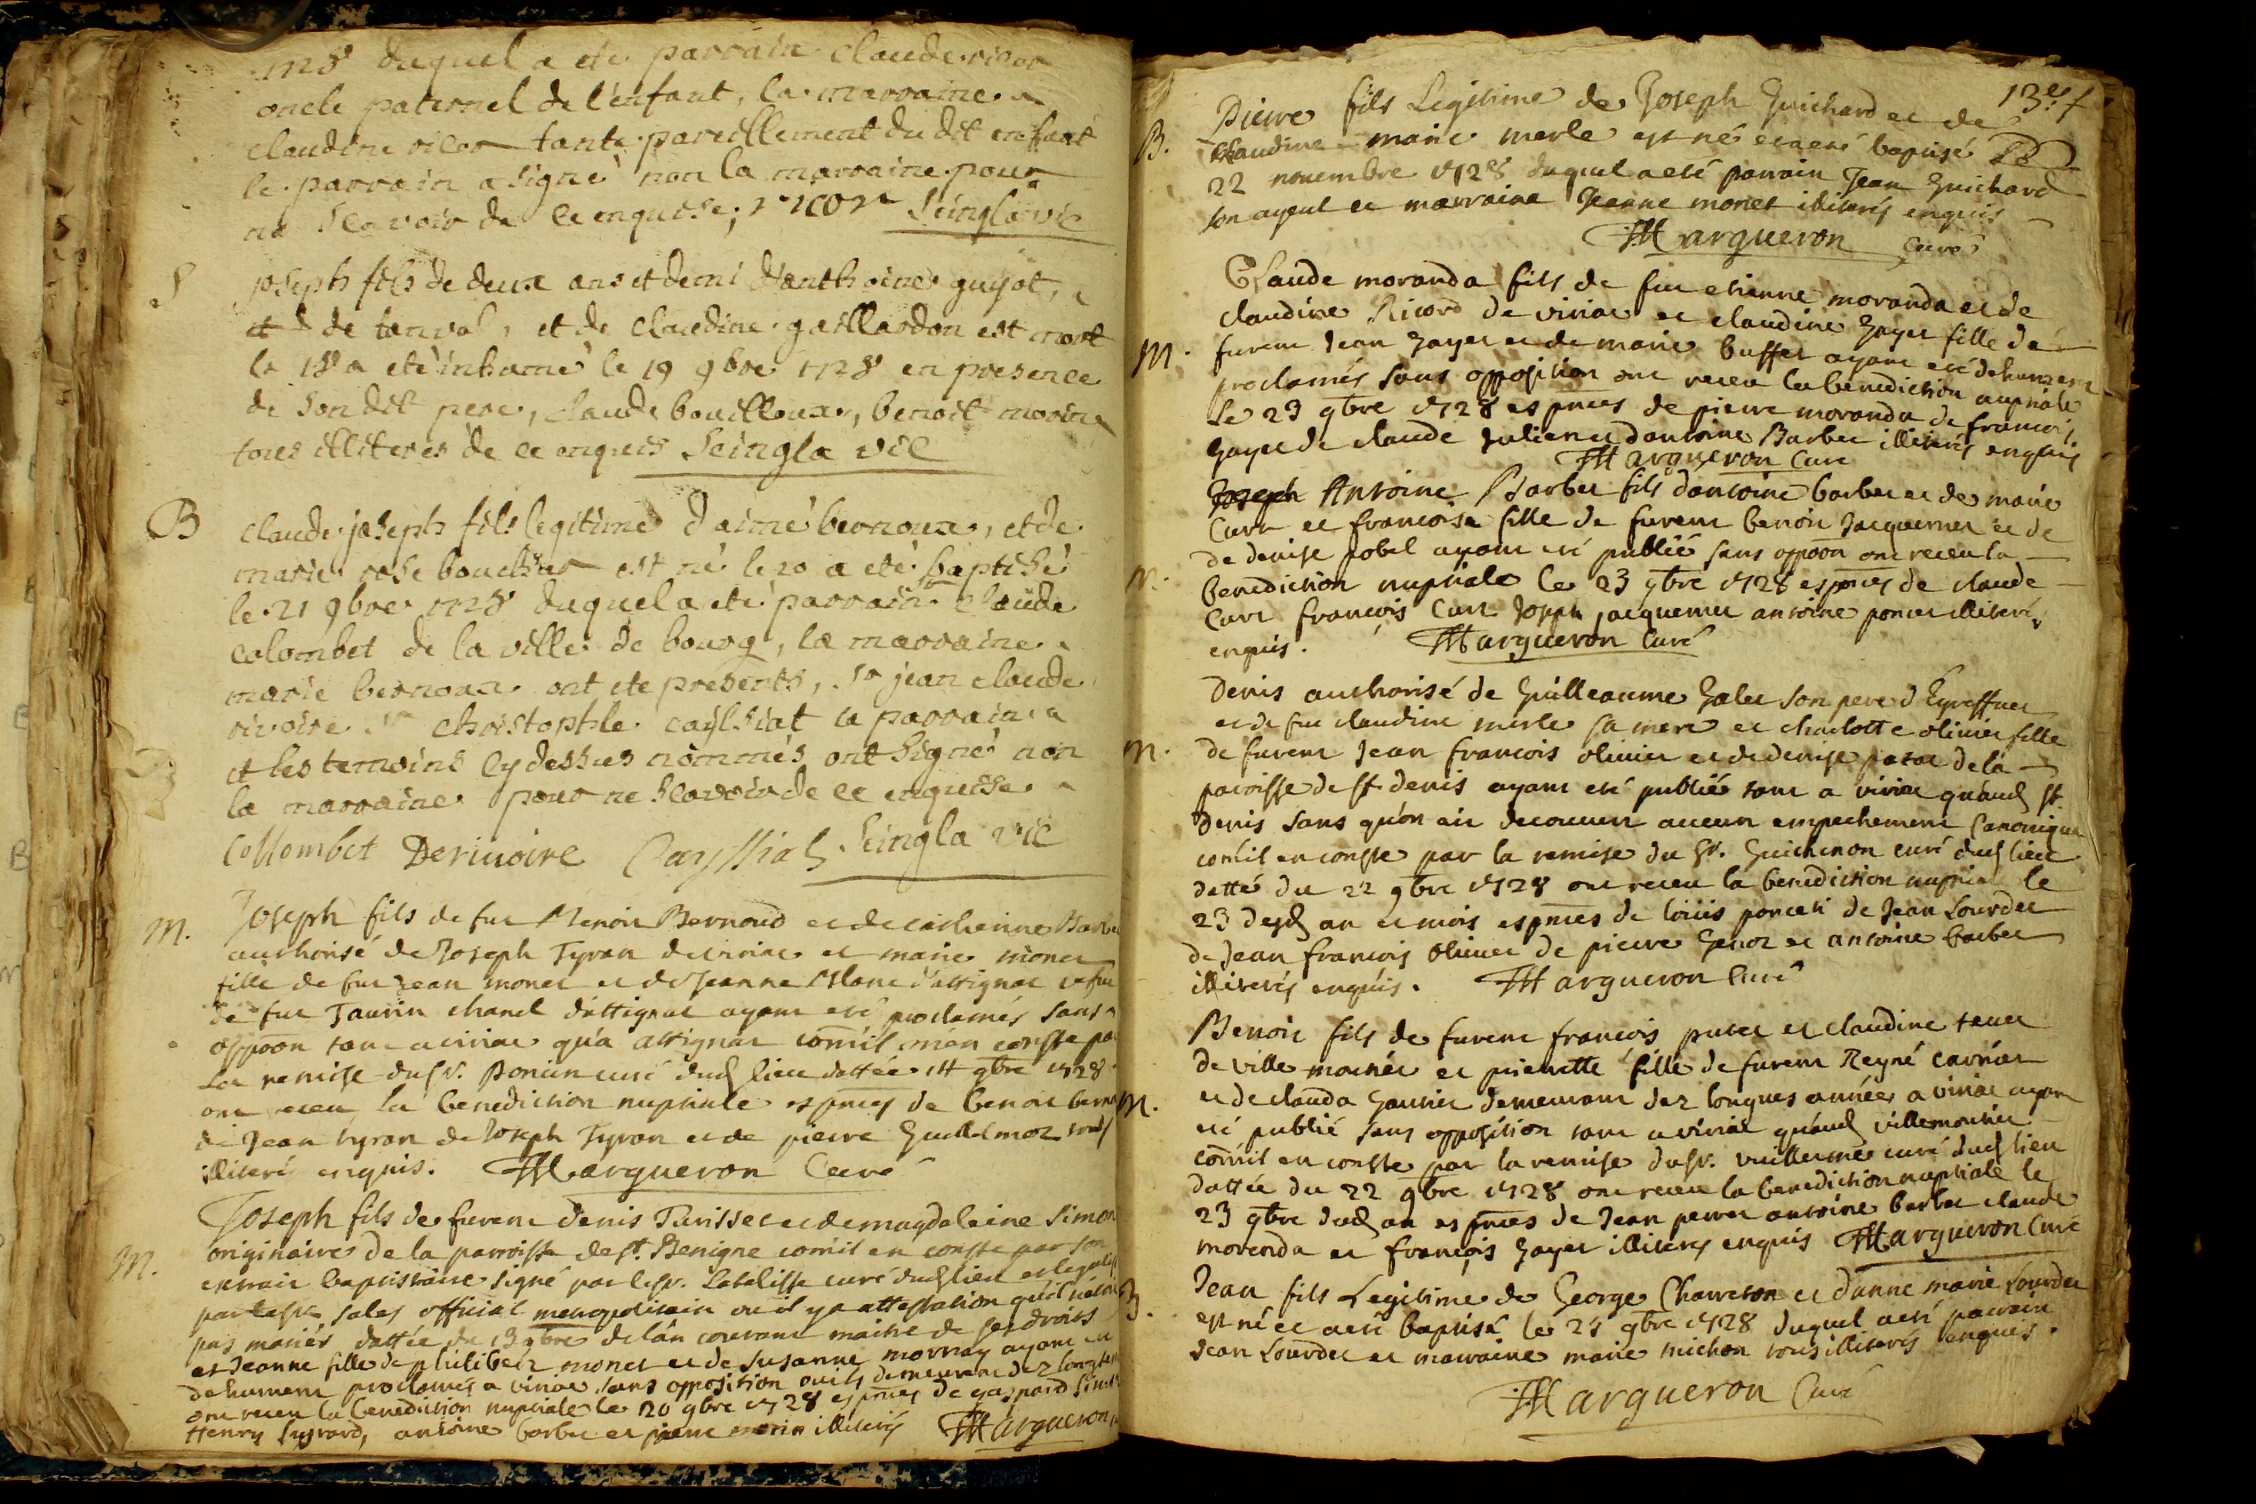 1728 duquel a ete parrain claude ricor
oncle paternel de l'enfant, la marraine
claudine ricor tante pareillement du dit enfant
le parrain a signé non la marraine pour
ne scavoir de ce enquise; ricor Seingla vic
S joseph fils de deux ans et demi d'anthoine guyot,
et de tanvol, et de claudine gaillardon est mort
le 18 a ete inhumé le 19 9bre 1728 en presence
de son dit pere, claude bouilloux, benoit morin
tous illiteres de ce enquis Seingla vic
B claude joseph fils legitime d'aimé bernoux, et de
marie rose bouchur est né le 20 a eté baptisé
le 21 9bre 1728 duquel a ete parrain sr claude
colombet de la ville de bourg, la marraine
marie bernoux ont ete presents, sr jean claude
rivoire sr christophle caylsiat le parrain
et les temoins cy dessus nommés ont signé non
la marraine pour ne scavoir de ce enquise
Collombet Derivoire Cayssial Seingla vic
M. Joseph fils de fut Benoit Bernoud et de catherine Barbe
authorisé de Joseph Tyran de viriac et marie monet
fille de fut jean monet et de Jeanne Blanc d'attignat
de fut Taurin chanel d'attignat ayant eté proclamés sans
oppoon tant a viriac qu'a attignat comil men conste par
la remise du sr. Poncin curé dud lieu dattée 14 9bre 1728
ont receu la benediction nuptiale es pnces de benoit
de Jean tyran de Joseph Tyran et de pierre Guillelmoz
illiteré enquis. Margueron Curé
Joseph fils de furent denis Turisset et de magdelaine Simon
M. originaire de la parroisse de st. Benigne comil en conste par son
extrait baptistaire signé par le sr. Labalisse curé dud lieu et
par le sr Sales official metropolitain ou il y a attestation quil n'étoit
pas mariés dattée du 13 9bre de l'an courant maitre de ses droits
et Jeanne fille de philibert monet et de susanne mornay ayant eté
dehument proclamés a viriac sans opposition ou ils demeurent dez
ont receu la benediction nuptiale le 20 9bre 1728 es pnces de gaspard
Henry Sugrard, antoine barbet et pierre morin illiterés Margueron
13e f
B. Pierre fils Legitime de Joseph Guichard et de
claudine marie merle est né et a eté baptisé le
22 novembre 1728 duquel a eté parrain Jean Guichard
son ayeul et marraine Jeanne monet illiterés enquis
Margueron curé
Claude moranda fils de fut etienne moranda et de
claudine Ricord de viriac et claudine Gayet fille de
M. furent Jean Gayet et de marie buffet ayant eté dehument
proclamés sans opposition ont receu la benediction nuptiale
le 23 9bre 1728 es pnces de pierre moranda de francois
gayet de claude Julien et d'antoine Barbet illiterés enquis
Margueron Curé
Joseph Antoine Barbet fils d'antoine barbet et de marie
Curt et francoise fille de furent benoit Jacquemet et de
de denise pobel ayant eté publié sans oppoon ont receu la
M. benediction nuptiale le 23 9bre 1728 es pnces de claude
Curt françois Curt Joseph jacquemet antoine poncet illiterés
enquis. Margueron Curé
denis authorisé de Guilleaume Galet son pere d'Eyreffuet
et de fut claudine merle sa mere et charlotte olivier fille
M. de furent Jean francois olivier et de denise de la
parroisse de st. denis ayant eté publié tant a viriac qu'aud st.
denis sans qu'on ait decouvert aucun empechement Canonique
comil en conste par la remise du sr. Guichenon curé dud lieu
datté du 22 9bre 1728 ont receu la benediction nuptial le
23 desd an et mois es pnces de loüis poncet de Jean Lourdet
de Jean francois Olivier de pierre et antoine barbet
illiterés enquis. Margueron Curé
Benoit fils de furent francois putet et claudine
de ville motier et pierrette fille de furent Reyné
M. et de clauda Gautier demeurant dez longues années a viriac ayant
eté publié sans opposition tant a viriac qu'aud villemotier
comil en conste par la remise du sr. vuillermé curé dud lieu
dattée du 22 9bre 1728 ont receu la benediction nuptiale le
23 9bre dud an es pnces de Jean perret antoine barbet claude
morenda et françois Gayet illiterés enquis Margueron Curé
B. Jean fils Legitime de George Charreton et d'anne marie Lourdet
est né et a eté baptisé le 23 9bre 1728 duquel a eté parrain
Jean Lourdet et marraine marie michon tous illiterés enquis.
Margueron Curé